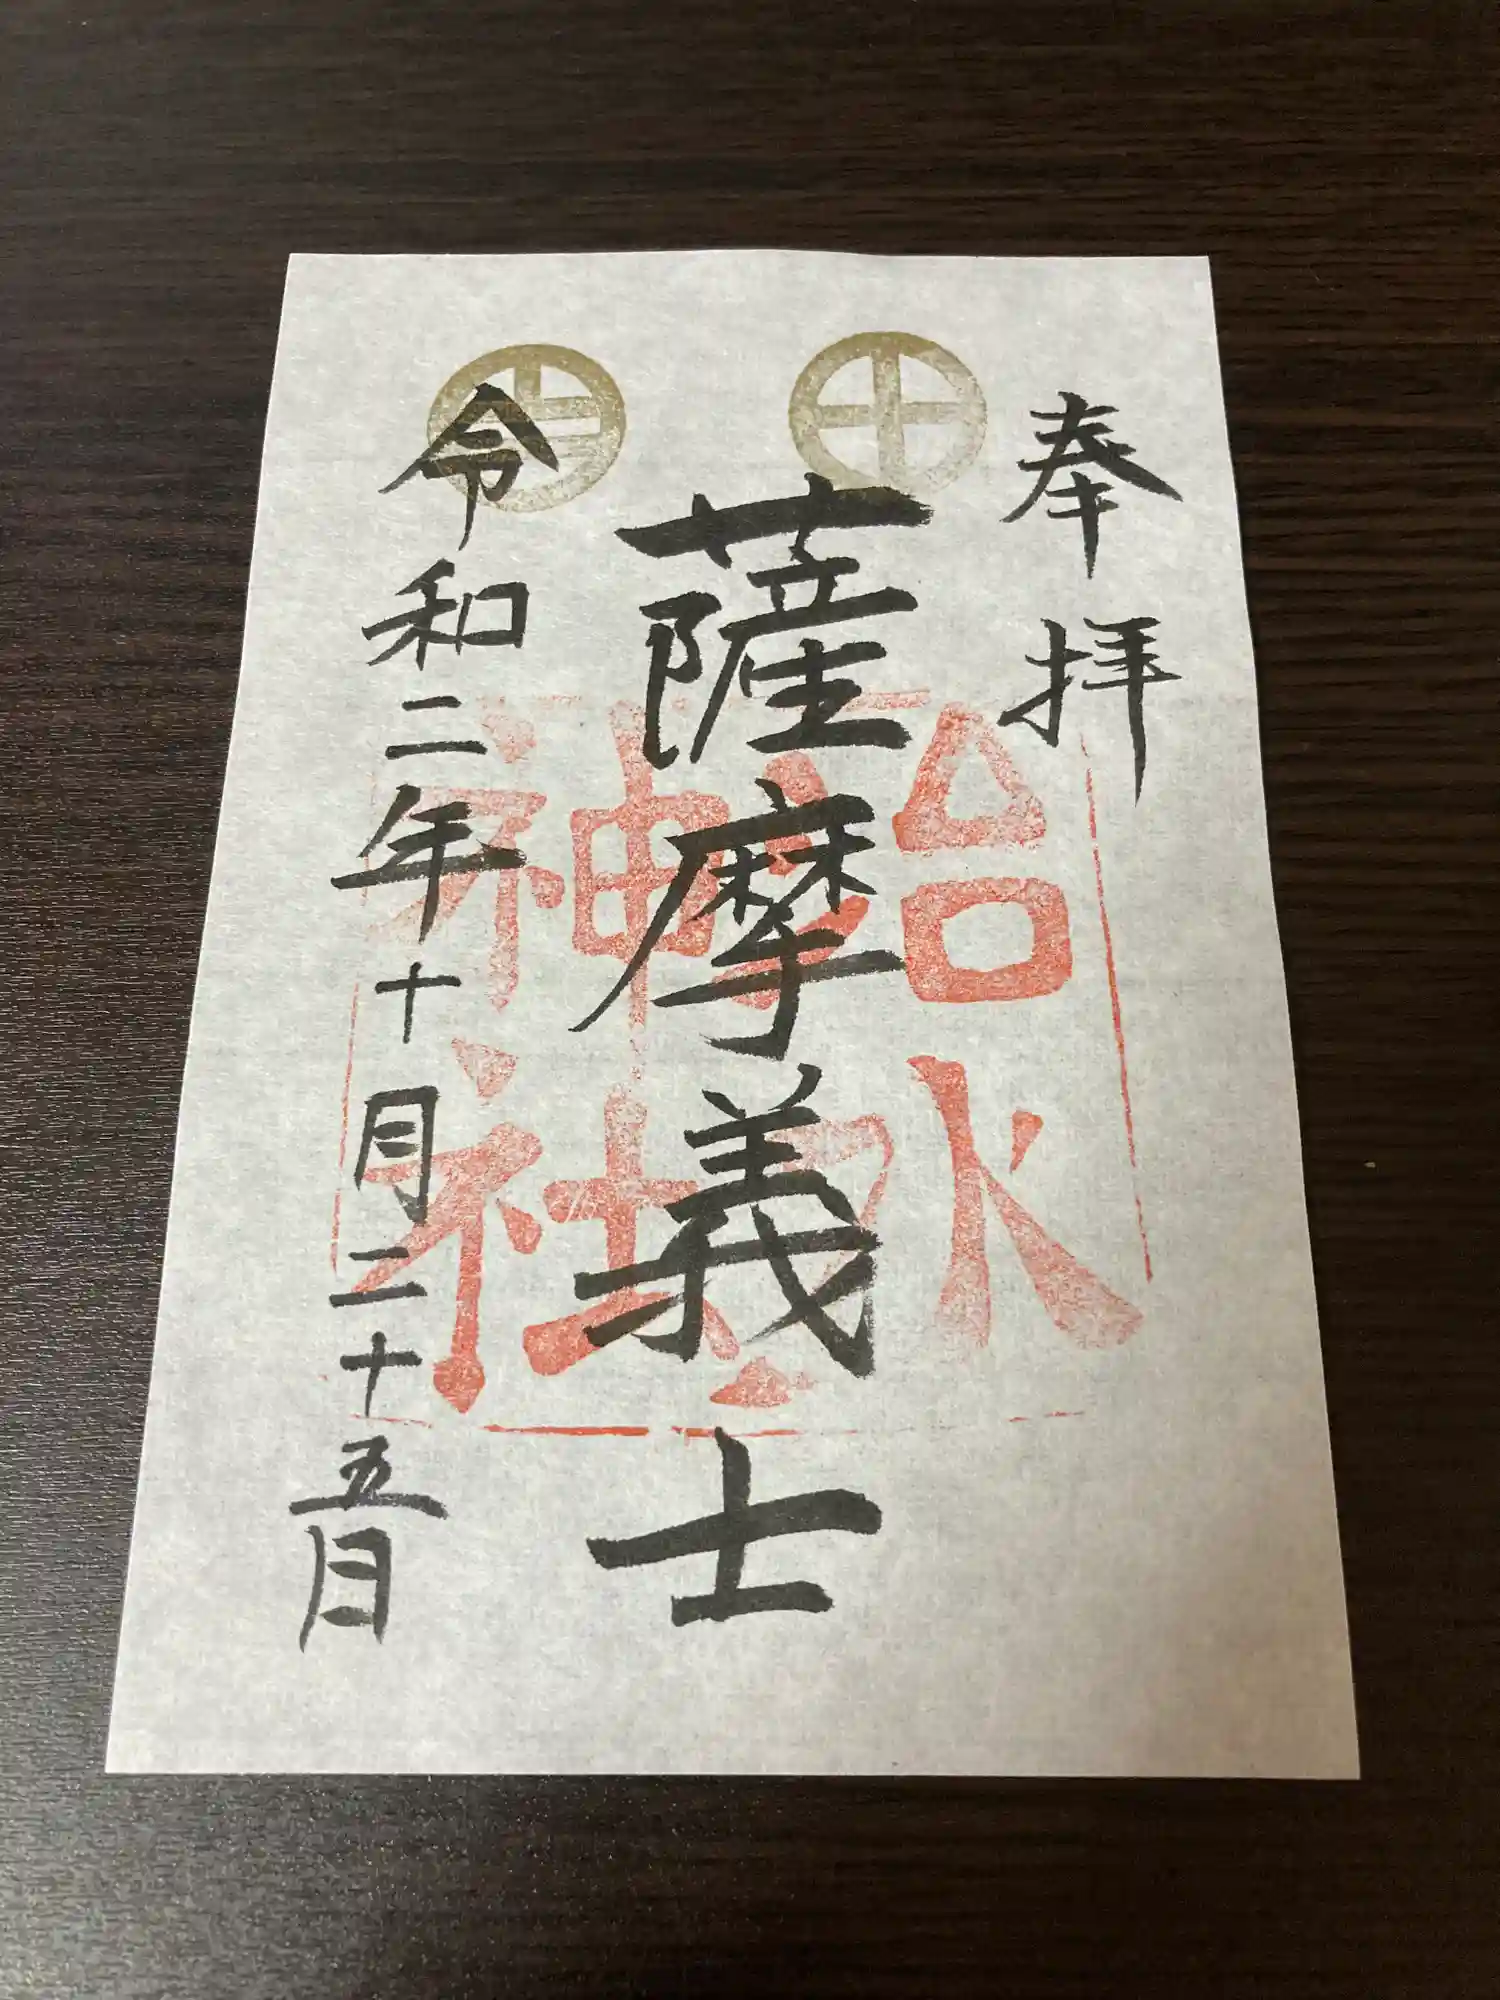 奉拝
薩摩義士
治水神社
令和二年十月二十五日